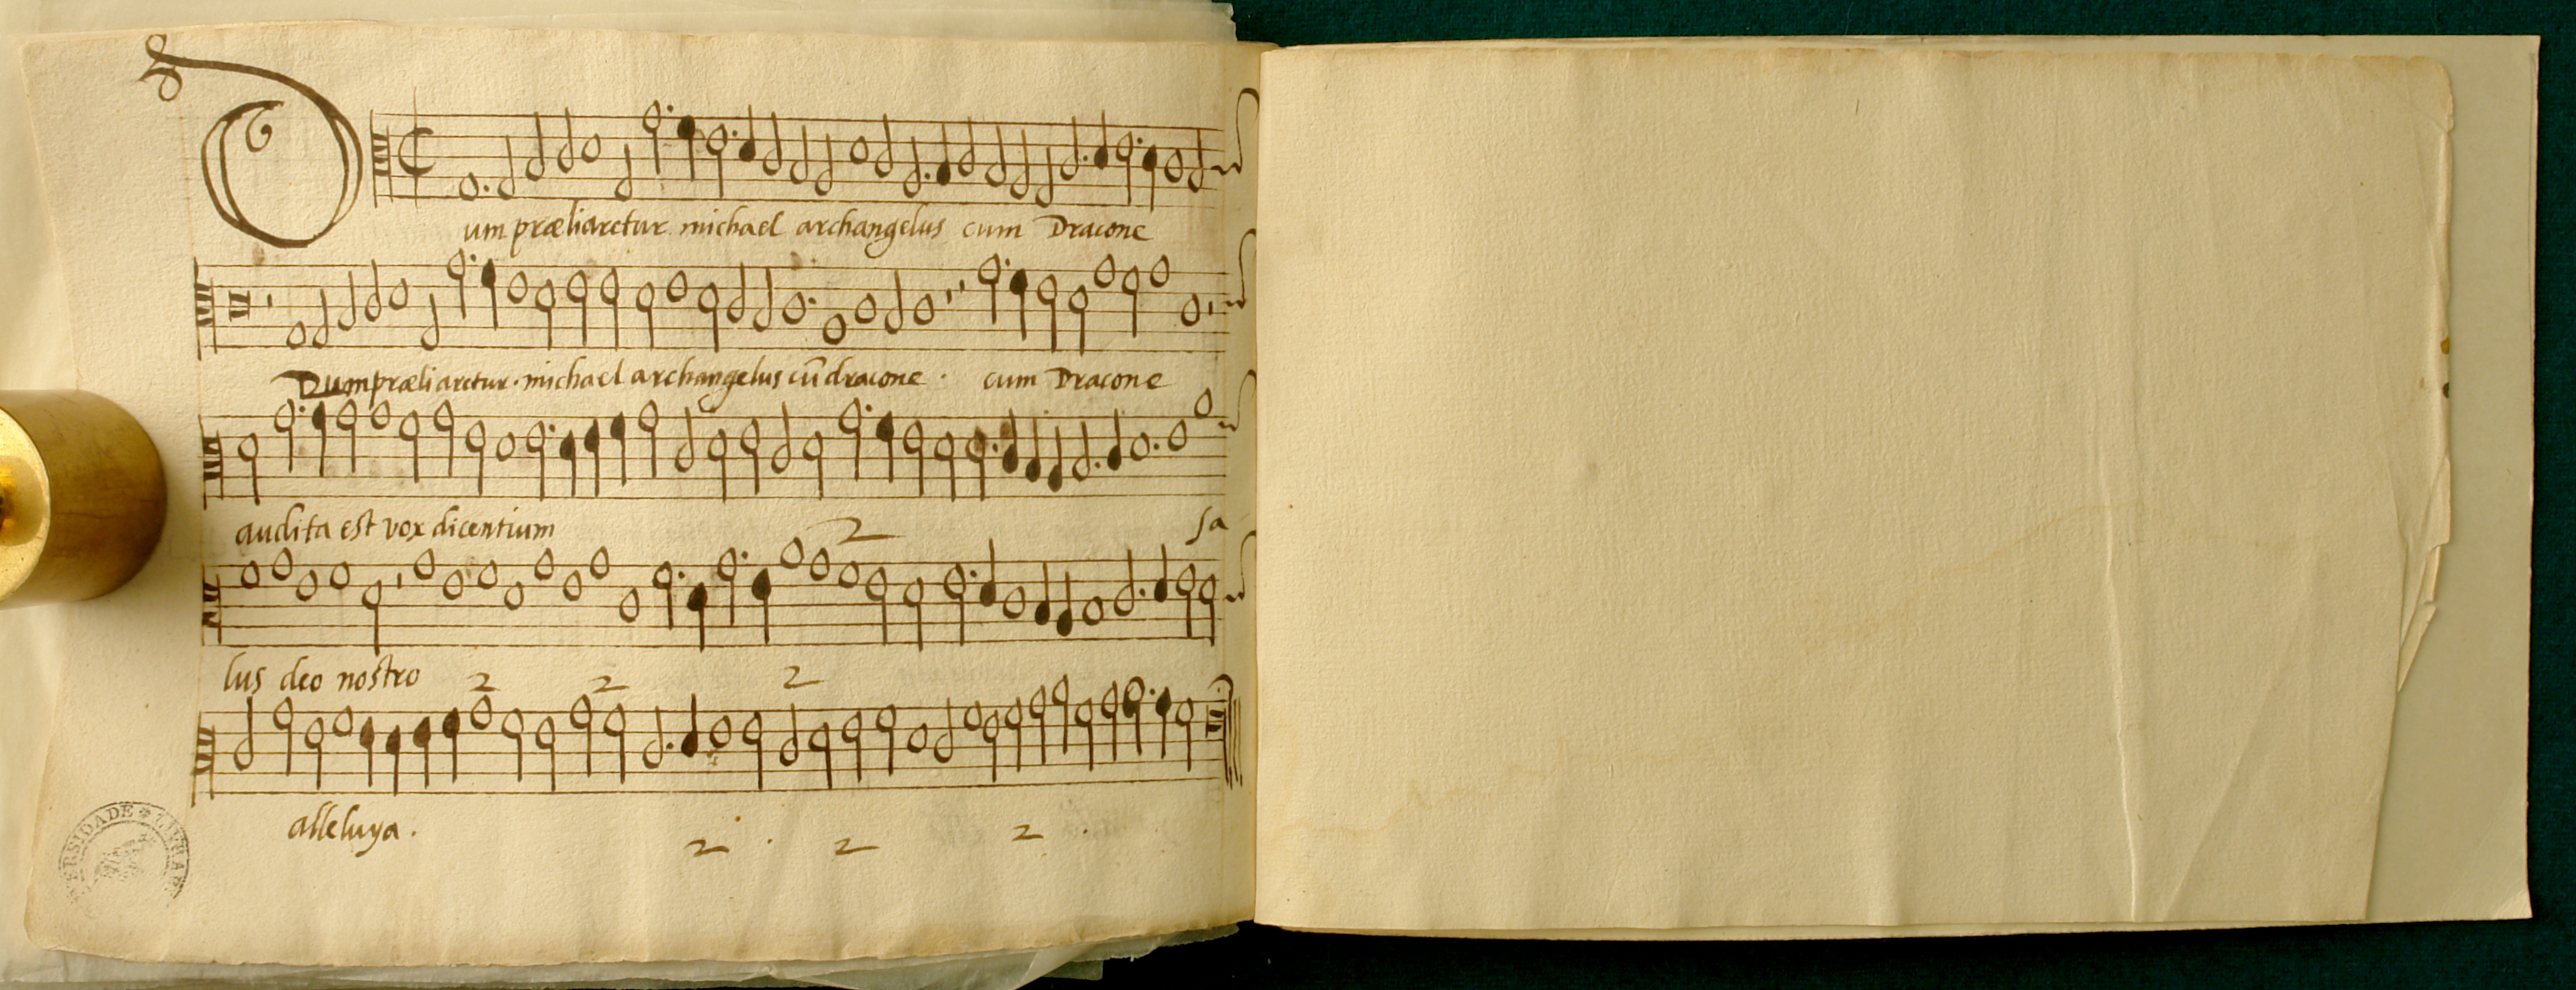 Dum præliaretur michael archangelus cum Dracone
Dum præliaretur · michael archangelus cũ dracone · cum Dracone
audita est vox dicentium 2 sa
lus deo nostro 2 2 2
alleluya . 2 . 2 2 .